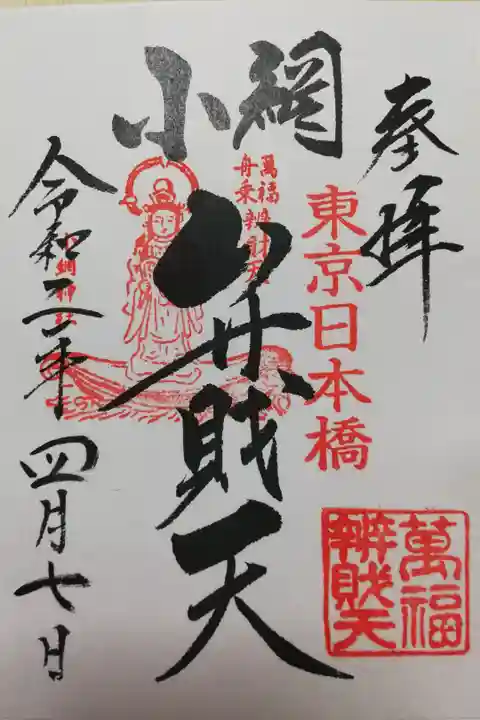 奉拝
東京日本橋
小網
弁財天
萬福
舟乗辨財天
網神社
令和二年四月七日
萬福
辨財天